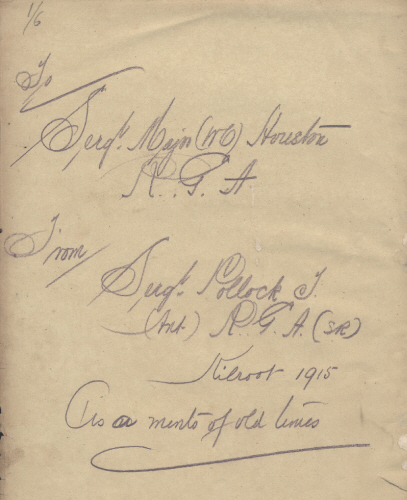 1/6
To
Sergt. Major (WO) Houston
R. G. A
From
Sergt. Pollock J.
(Ant.) R. G. A. (SR)
Kilroot 1915
As a mento of old times